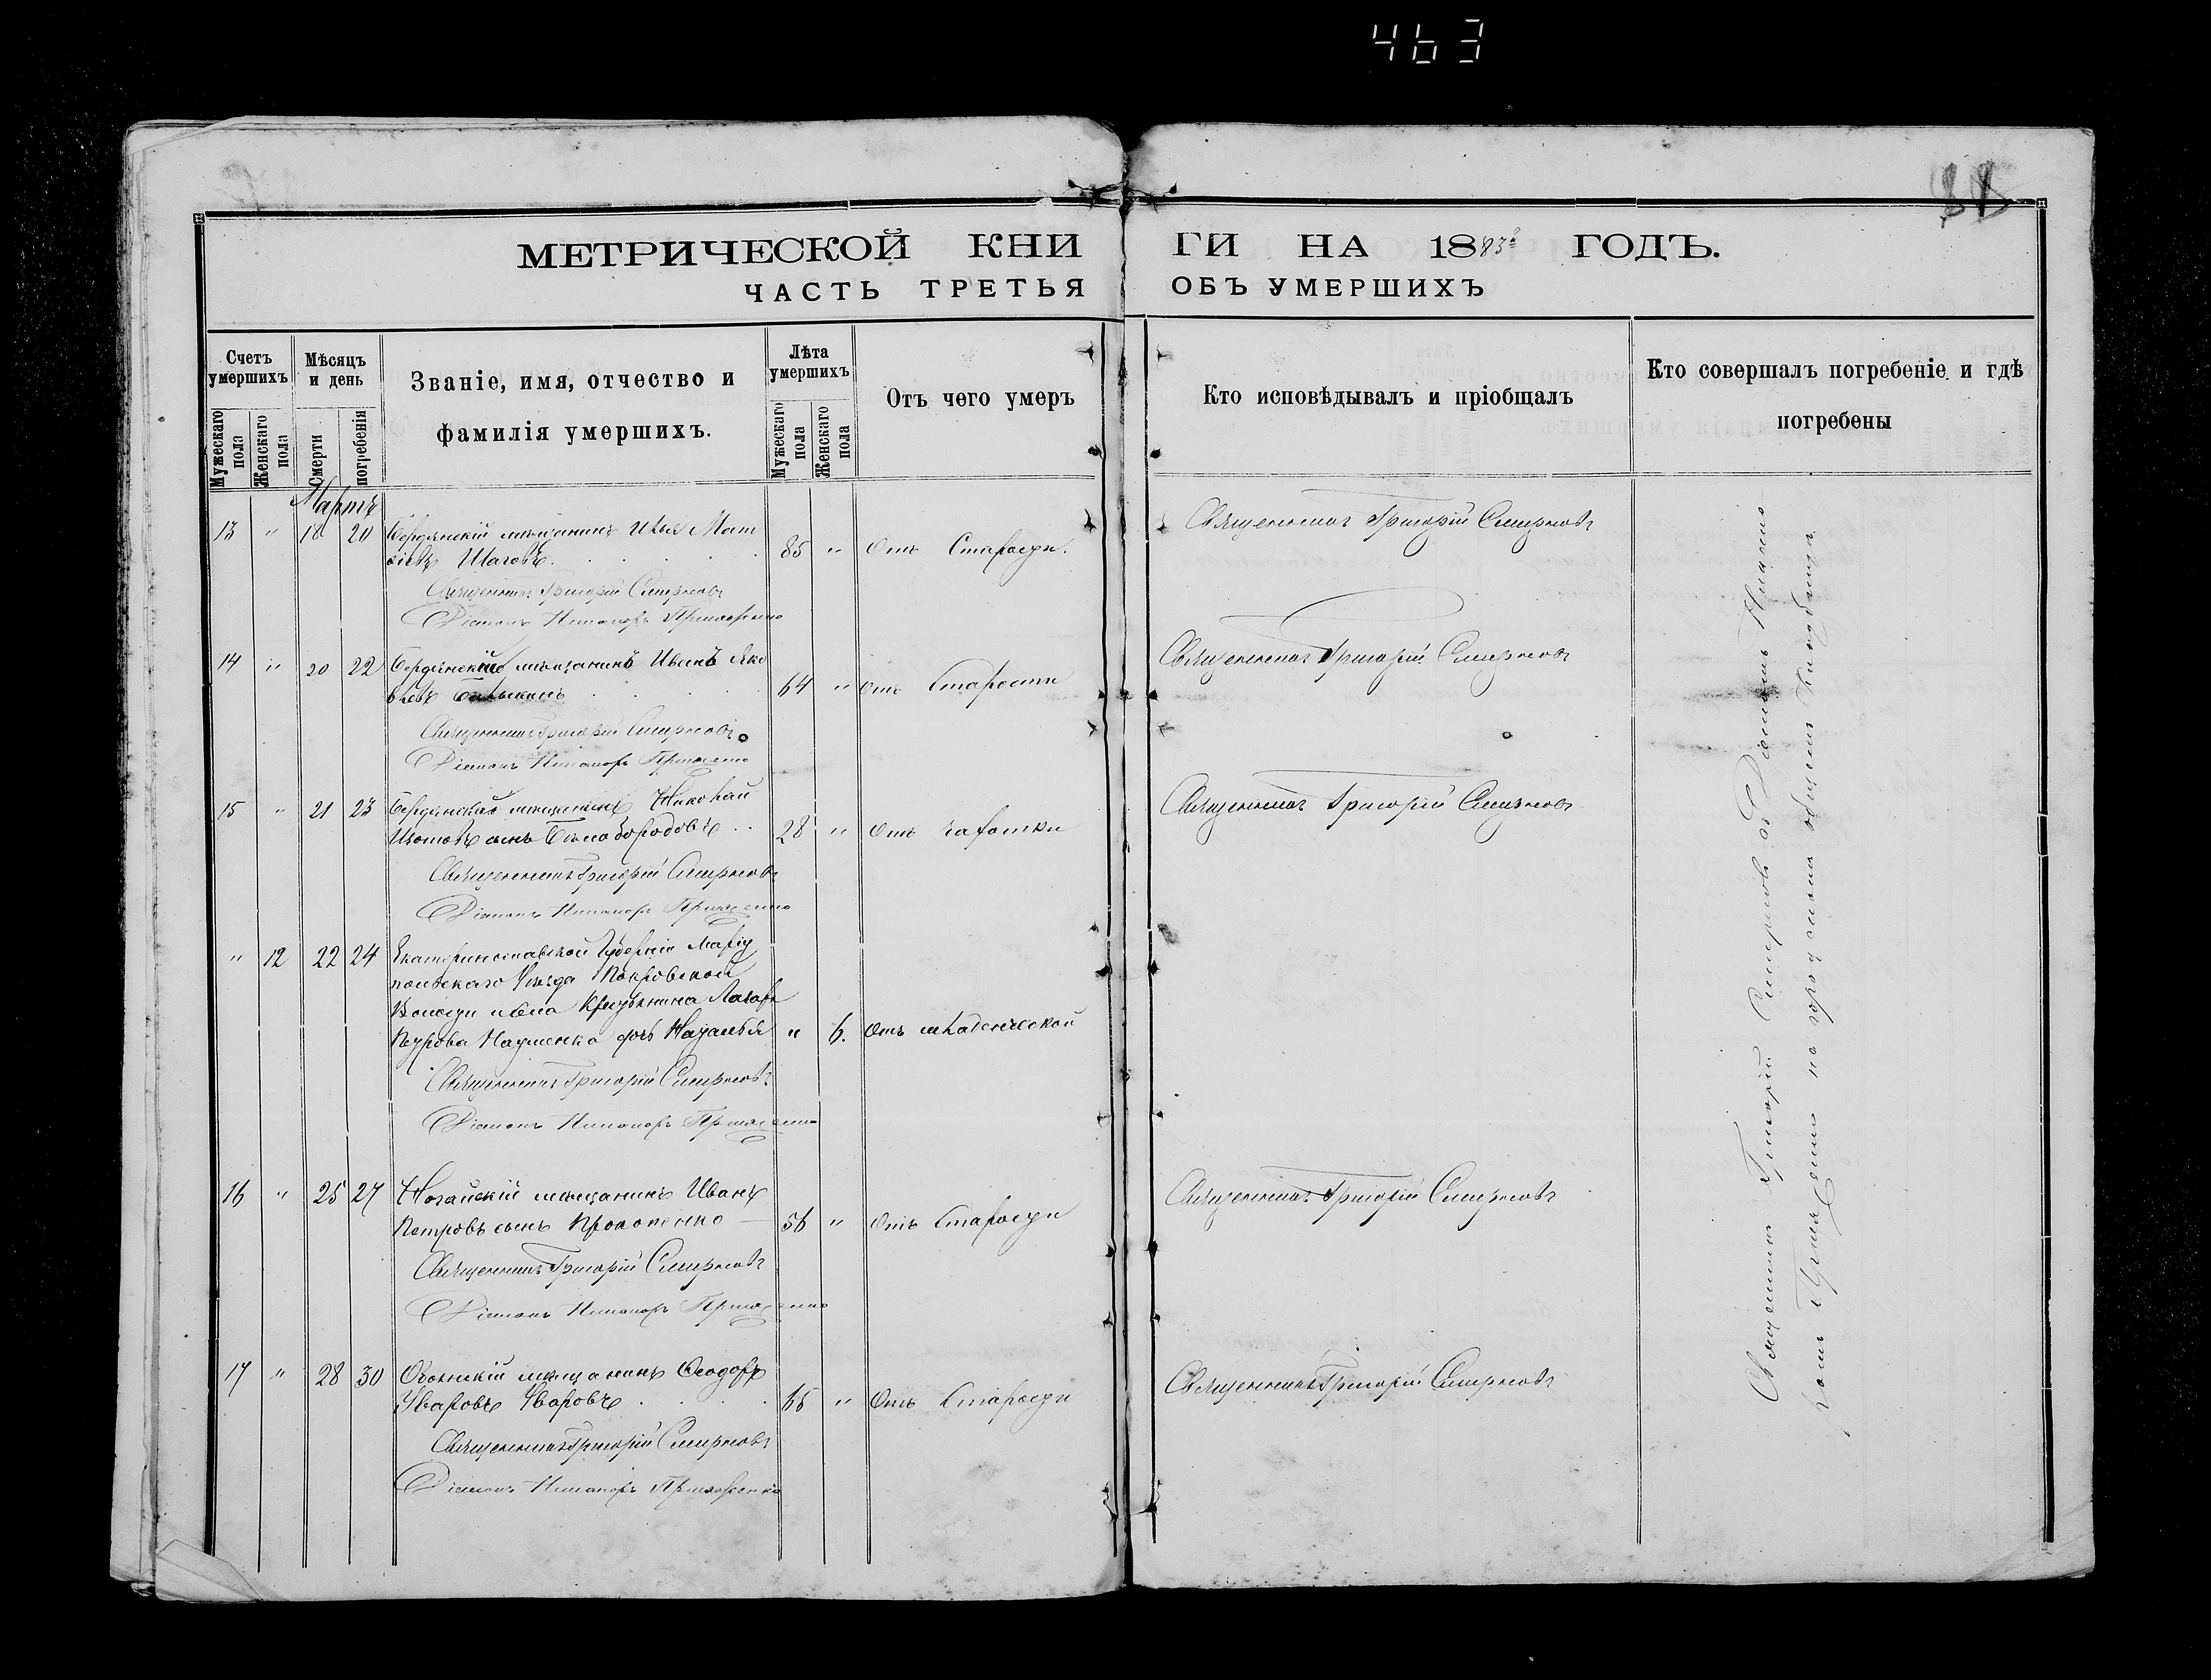 463
МЕТРИЧЕСКОЙ КНИГИ НА 1883 ГОДЪ.
ЧАСТЬ ТРЕТЬЯ ОБЪ УМЕРШИХЪ
Счетъ умершихъ
Мужескаго пола
Женскаго пола
Мѣсяцъ и день
Смерти
погребенія
Званіе, имя, отчество и
фамилія умершихъ.
Лѣта умершихъ
Мужескаго пола
Женскаго пола
Отъ чего умеръ
Кто исповѣдывалъ и пріобщалъ
Кто совершалъ погребеніе и гдѣ
погребены
Мартъ
13 " 18 20 Бердянскій мѣщанинъ Илья Мат
ѣевъ Шаговъ. 85 " Отъ Старости. Священникъ Григорій Смирновъ
Священникъ Григорій Смирновъ
Діаконъ Никаноръ
14 " 20 22 Бердянскій мѣщанинъ Иванъ Яко
влевъ 64 " Отъ Старости Священникъ Григорій Смирновъ
Священникъ Григорій Смирновъ
Діаконъ Никаноръ
15 " 21 23 Бердянскій мѣщанинъ Николай
Изотовъ сынъ Бѣлобородовъ 28 " Отъ чахотки Священникъ Григорій Смирновъ
Священникъ Григорій Смирновъ
Діаконъ Никаноръ
" 12 22 24 Екатеринославской Губерніи Маріу
польскаго Уѣзда Покровской
Волости и села Крестьянина Лазаря
Петрова Науменко дочь Наталья " 6. Отъ младенческой
Священникъ Григорій Смирновъ
Діаконъ Никаноръ
16 " 25 27 Ногайскій мѣщанинъ Иванъ
Петровъ сынъ Прокопенко 56 " Отъ Старости Священникъ Григорій Смирновъ
Священникъ Григорій Смирновъ
Діаконъ Никаноръ
17 " 28 30 мѣщанинъ Ѳеодоръ
Уваровъ Уваровъ 65 " Отъ Старости Священникъ Григорій Смирновъ
Священникъ Григорій Смирновъ
Діаконъ Никаноръ
Священникъ Григорій Смирновъ съ Діакономъ Никано
ромъ на городскомъ общемъ Кладбищѣ